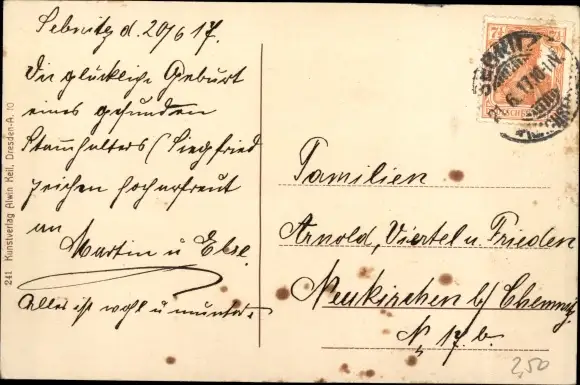 Sebnitz d. 20/6 17.
Die glückliche Geburt
eines gesunden
Stammhalters (Siegfried
zeichen hocherfreut
an
Martin u Else.
Alles ist wohl u munter.
Familien
Arnold, Viertel u. Frieden
Neukirchen b/ Chemnitz
No 17. b.
2,50
241 Kunstverlag Alwin Keil, Dresden-A. 10
SEBNITZ
21.6.17.10-11V.